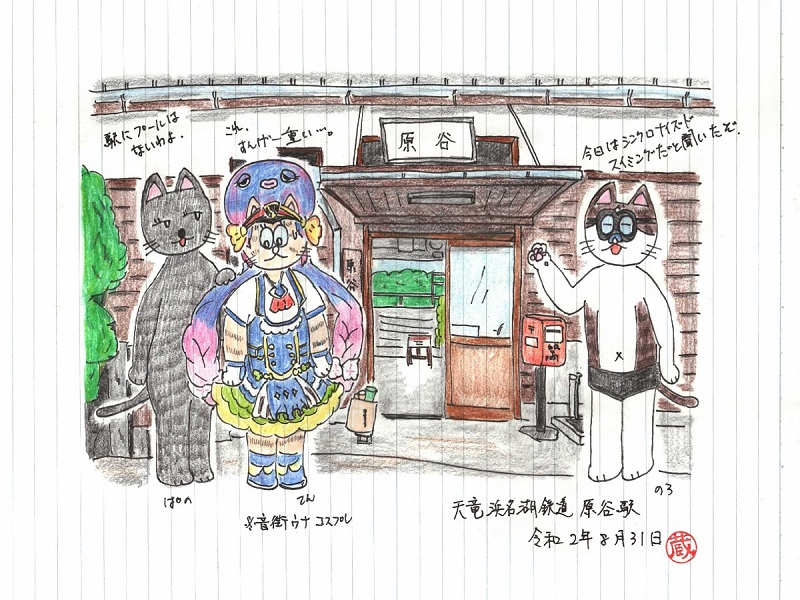 駅にプールは
ないわよ。
これ、
すんげー重い…。
今日はシンクロナイズド
スイミングだと聞いたぞ。
原谷
原谷
ぱの
てん
のろ
※音街ウナ コスプレ
天竜浜名湖鉄道 原谷駅
令和2年8月31日
蔵